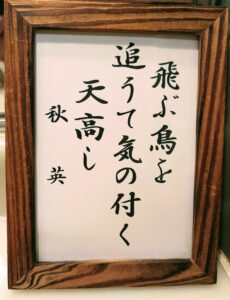 飛ぶ鳥を
追うて気の付く
天高し
秋英